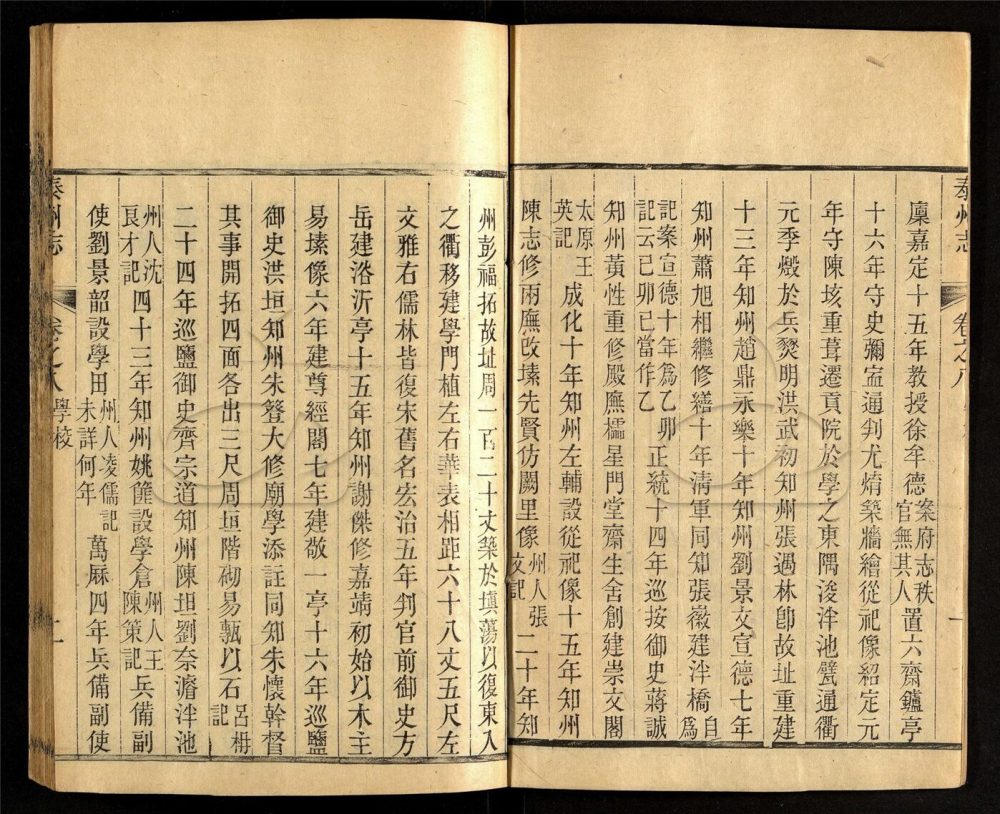 泰州志
卷之八
一
廩嘉定十五年教授徐牟德案府志秩官無其人置六齋鑪亭
十六年守史彌寍通判尤焴築牆繪從祀像紹定元
年守陳垓重葺遷貢院於學之東隅浚泮池甃通衢
元季燬於兵燹明洪武初知州張遇林卽故址重建
十三年知州趙鼎永樂十年知州劉景文宣德七年
知州蕭旭相繼修繕十年清軍同知張徽建泮橋自為
記案宣德十年為乙卯記云己卯己當作乙正統十四年巡按御史蔣誠
知州黃性重修殿廡櫺星門堂齋生舍創建崇文閣
太原王英記成化十年知州左輔設從祀像十五年知州
陳志修兩廡改塑先賢仿闕里像州人張文記二十年知
州彭福拓故址周一百二十丈築於填蕩以復東入
之衢移建學門植左右華表相距六十八丈五尺左
交雅右儒林皆復宋舊名宏治五年判官前御史方
岳建浴沂亭十五年知州謝傑修嘉靖初始以木主
易塑像六年建尊經閣七年建敬一亭十六年巡鹽
御史洪垣知州朱簦大修廟學添註同知朱懷幹督
其事開拓四面各出三尺周垣階砌易甎以石呂枏記
二十四年巡鹽御史齊宗道知州陳坦劉奈濬泮池
州人沈良才記四十三年知州姚篚設學倉州人王陳策記兵備副
使劉景韶設學田州人凌儒記未詳何年萬厤四年兵備副使
泰州志
卷之八
學校
二